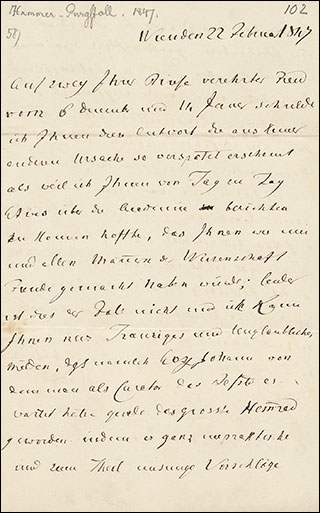 Hammer-Purgstall. 1847.
102
52)
Wien den 22 Februar 1847
Auf zwey Ihrer Briefe verehrter Freund
vom 6 und 14 Janer schulde
ich Ihnen den Antwort die aus keiner
anderen Ursache so verspätet erscheint
als weil ich Ihnen von Tag zu Tag
Etwas über die Academie berichten
zu können hoffte, das Ihnen wie mir
und allen Männern der Wissenschaft
Freude gemacht haben würde; leider
ist dies der Fall nicht und ich kann
Ihnen nur Trauriges und Unglaubliches
melden, daß nämlich Erzh Johann von
dem man als Curator das Beste er-
wartet hatte gerade das grosste
geworden indem er ganz unpraktische
und zum Theil unsinnige Vorschläge